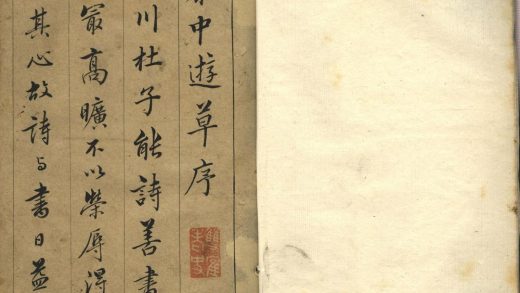 中遊草序
川杜子能詩善書
最高曠不以榮辱得
其心故詩与書日益